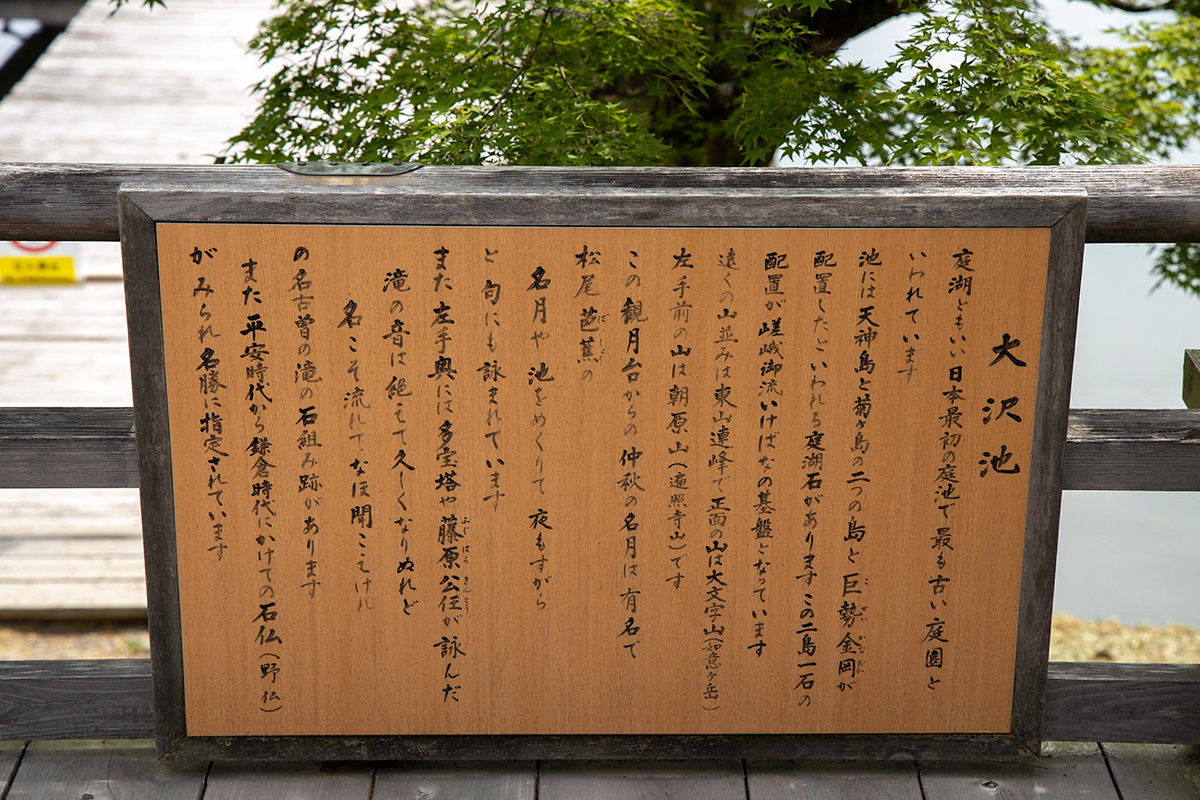 大沢池
庭湖ともいい日本最初の庭池で最も古い庭園と
いわれています
池には天神島と菊ヶ島の二つの島と巨勢金岡が
配置したといわれる庭湖石があります この二島一石の
配置が嵯峨御流いけばなの基盤となっています
遠くの山並みは東山連峰で正面の山は大文字山(如意ヶ岳)
左手前の山は朝原山(遍照寺山)です
この観月台からの仲秋の名月は有名で
松尾芭蕉の
名月や 池をめぐりて 夜もすがら
と句にも詠まれています
また左手奥には多宝塔や藤原公任が詠んだ
滝の音は絶えて久しくなりぬれど
名こそ流れてなほ聞こえけれ
の名古曽の滝の石組み跡があります
また平安時代から鎌倉時代にかけての石仏(野仏)
がみられ名勝に指定されています